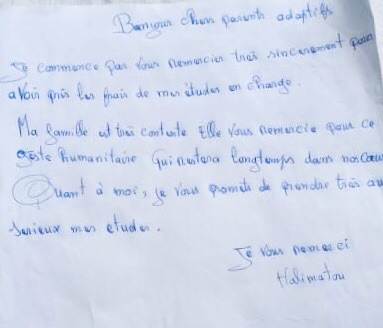 Bonjour chers parents adoptifs
Je commence par vous remercier très sincerement pour
avoir pris les frais de mes études en charge.
Ma famille est très contente Elle vous remercie pour ce
geste humanitaire Qui restera longtemps dans nos Cœu
Quant à moi, je vous promets de prendre très au
serieux mes etudes.
Je vous remerci
Halimatou